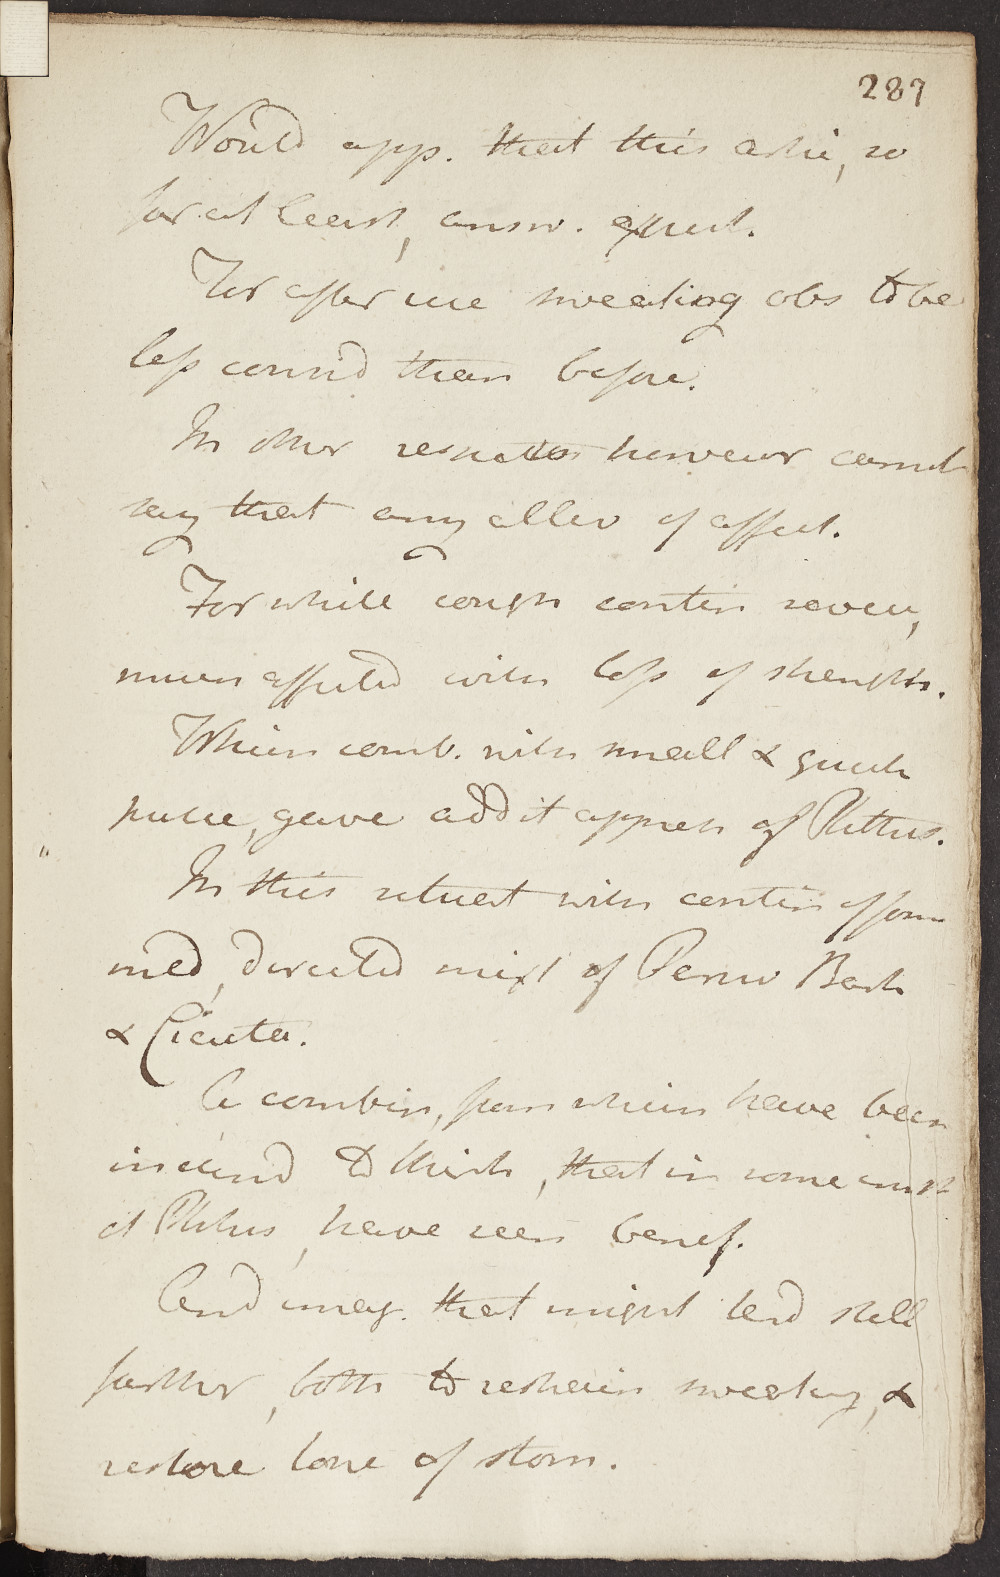 287
Would app. that this artic, so
far at least, answ. expect.
For after use sweating obs to be
less consid than before.
In other respects however cannot
say that any allev of affect.
For while cough contin severe,
much affected with loss of strength.
Which comb. with small & quick
pulse, gave addit appreh of Phthis.
In this situat with contin of form
med, directed mixt of Peruv Bark
& Cicuta.
A combin, from which have been
inclind to think, that in some inst
of Phthis, have seen benef.
And imag. that might tend still
farther, both to restrain sweating, &
restore tone of stom.